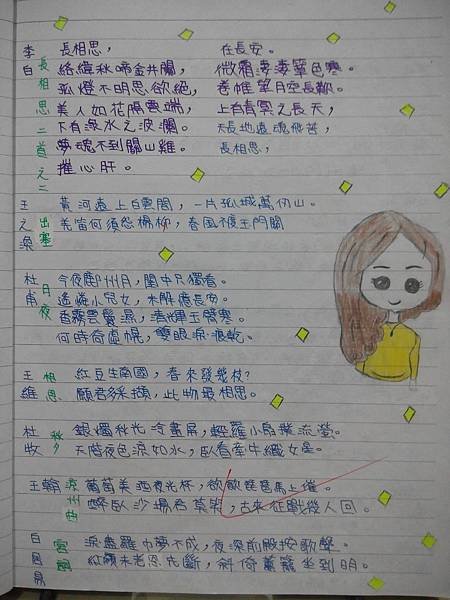 李白 長相思二首之二
長相思， 在長安。
絡緯秋啼金井闌， 微霜淒淒簟色寒。
孤燈不明思欲絕， 卷帷望月空長歎。
美人如花隔雲端， 上有青冥之長天，
下有淥水之波瀾。 天長地遠魂飛苦，
夢魂不到關山難。 長相思，
摧心肝。
王之渙 出塞
黃河遠上白雲間，一片孤城萬仞山。
羌笛何須怨楊柳，春風不度玉門關
杜甫 月夜
今夜鄜州月，閨中只獨看。
遙憐小兒女，未解憶長安。
香霧雲鬟濕，清輝玉臂寒。
何時倚虛幌，雙照淚痕乾。
王維 相思
紅豆生南國，春來發幾枝？
願君多采擷，此物最相思。
杜牧 秋夕
銀燭秋光冷畫屏，輕羅小扇撲流螢。
天階夜色涼如水，臥看牽牛織女星。
王翰 涼州曲
葡萄美酒夜光杯，欲飲琵琶馬上催。
醉臥沙場君莫笑，古來征戰幾人回。
白居易 宮詞
淚盡羅巾夢不成，夜深前殿按歌聲。
紅顏未老恩先斷，斜倚薰籠坐到明。